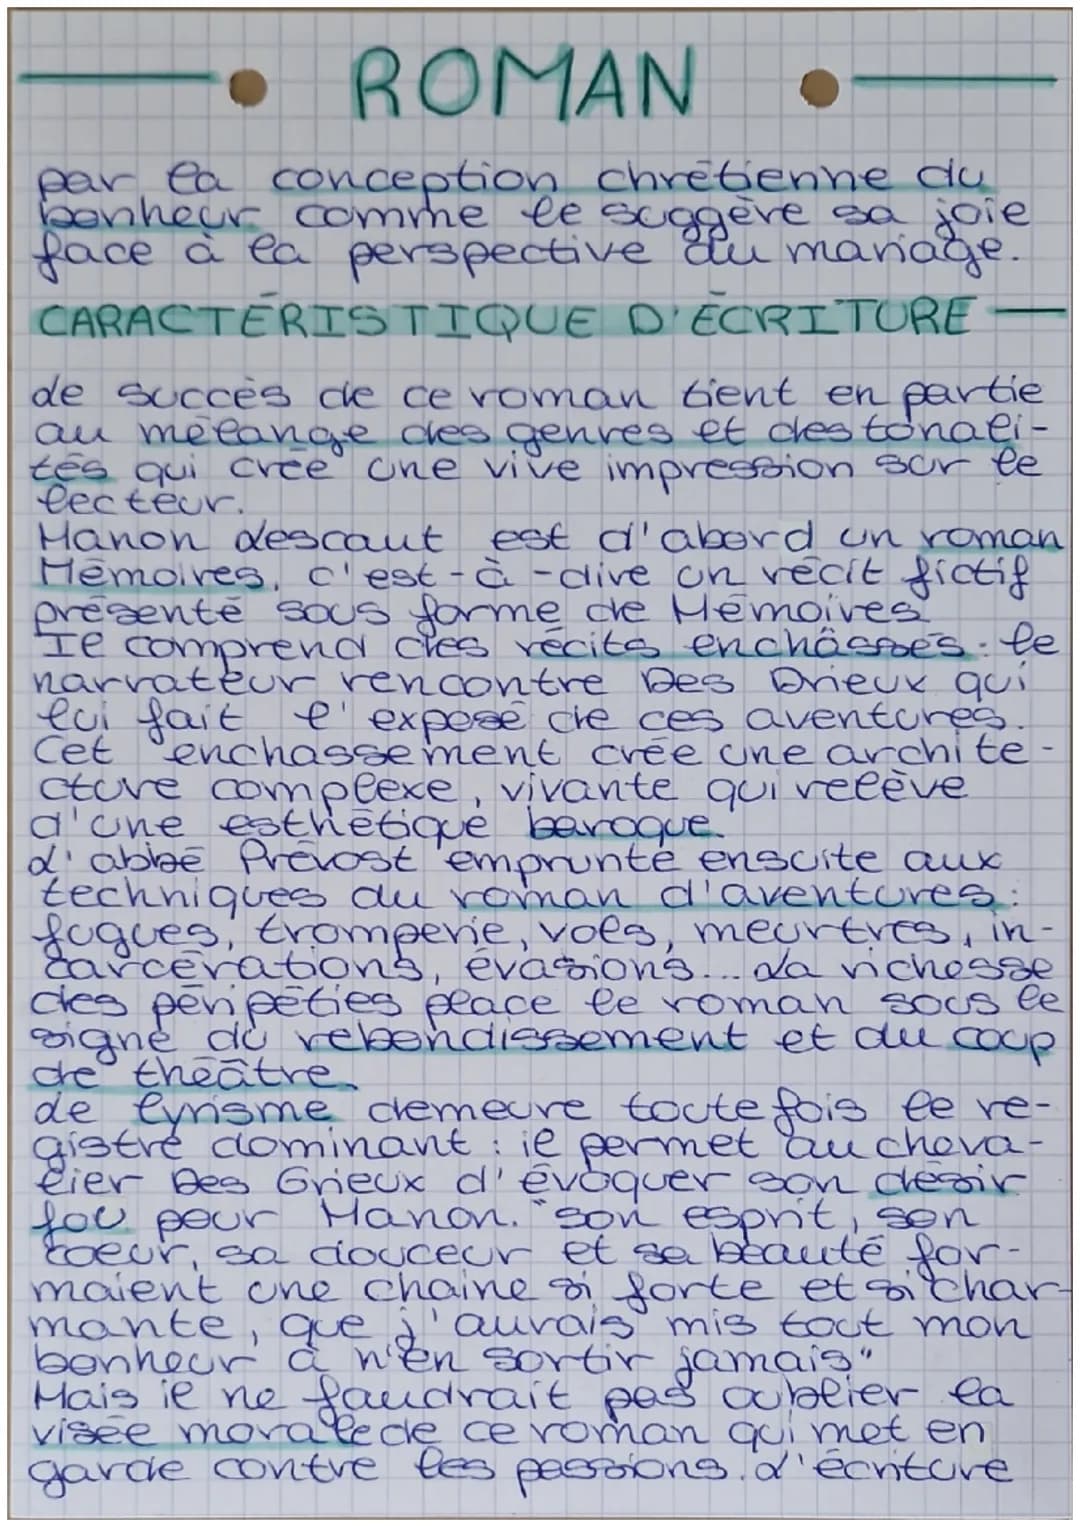 ROMAN
par la conception chrétienne du
bonheur comme le suggère sa joie
face à la perspective du mariage.
CARACTÉRISTIQUE D'ÉCRITURE
Le succès de ce roman tient en partie
au mélange des genres et des tonali-
tés qui crée une vive impression sur le
lecteur.
Manon Lescaut est d'abord un roman
Mémoires, c'est-à-dire un récit fictif
présenté sous forme de Mémoires
Il comprend des récits enchâssés : le
narrateur rencontre Des Grieux qui
lui fait l'exposé de ces aventures.
Cet enchassement crée une archite-
cture complexe, vivante qui relève
d'une esthétique baroque.
L'abbé Prévost emprunte ensuite aux
techniques du roman d'aventures :
fugues, tromperie, vols, meurtres, in-
carcérations, évasions... La richesse
des péripéties place le roman sous le
signe du rebondissement et du coup
de théâtre.
Le lyrisme demeure toutefois le re-
gistre dominant : il permet au cheva-
lier Des Grieux d'évoquer son désir
fou pour Manon. "son esprit, son
coeur, sa douceur et sa beauté for-
maient une chaine si forte et si char-
mante, que j'aurais mis tout mon
bonheur à n'en sortir jamais"
Mais il ne faudrait pas oublier la
visée morale de ce roman qui met en
garde contre les passions. L'écriture